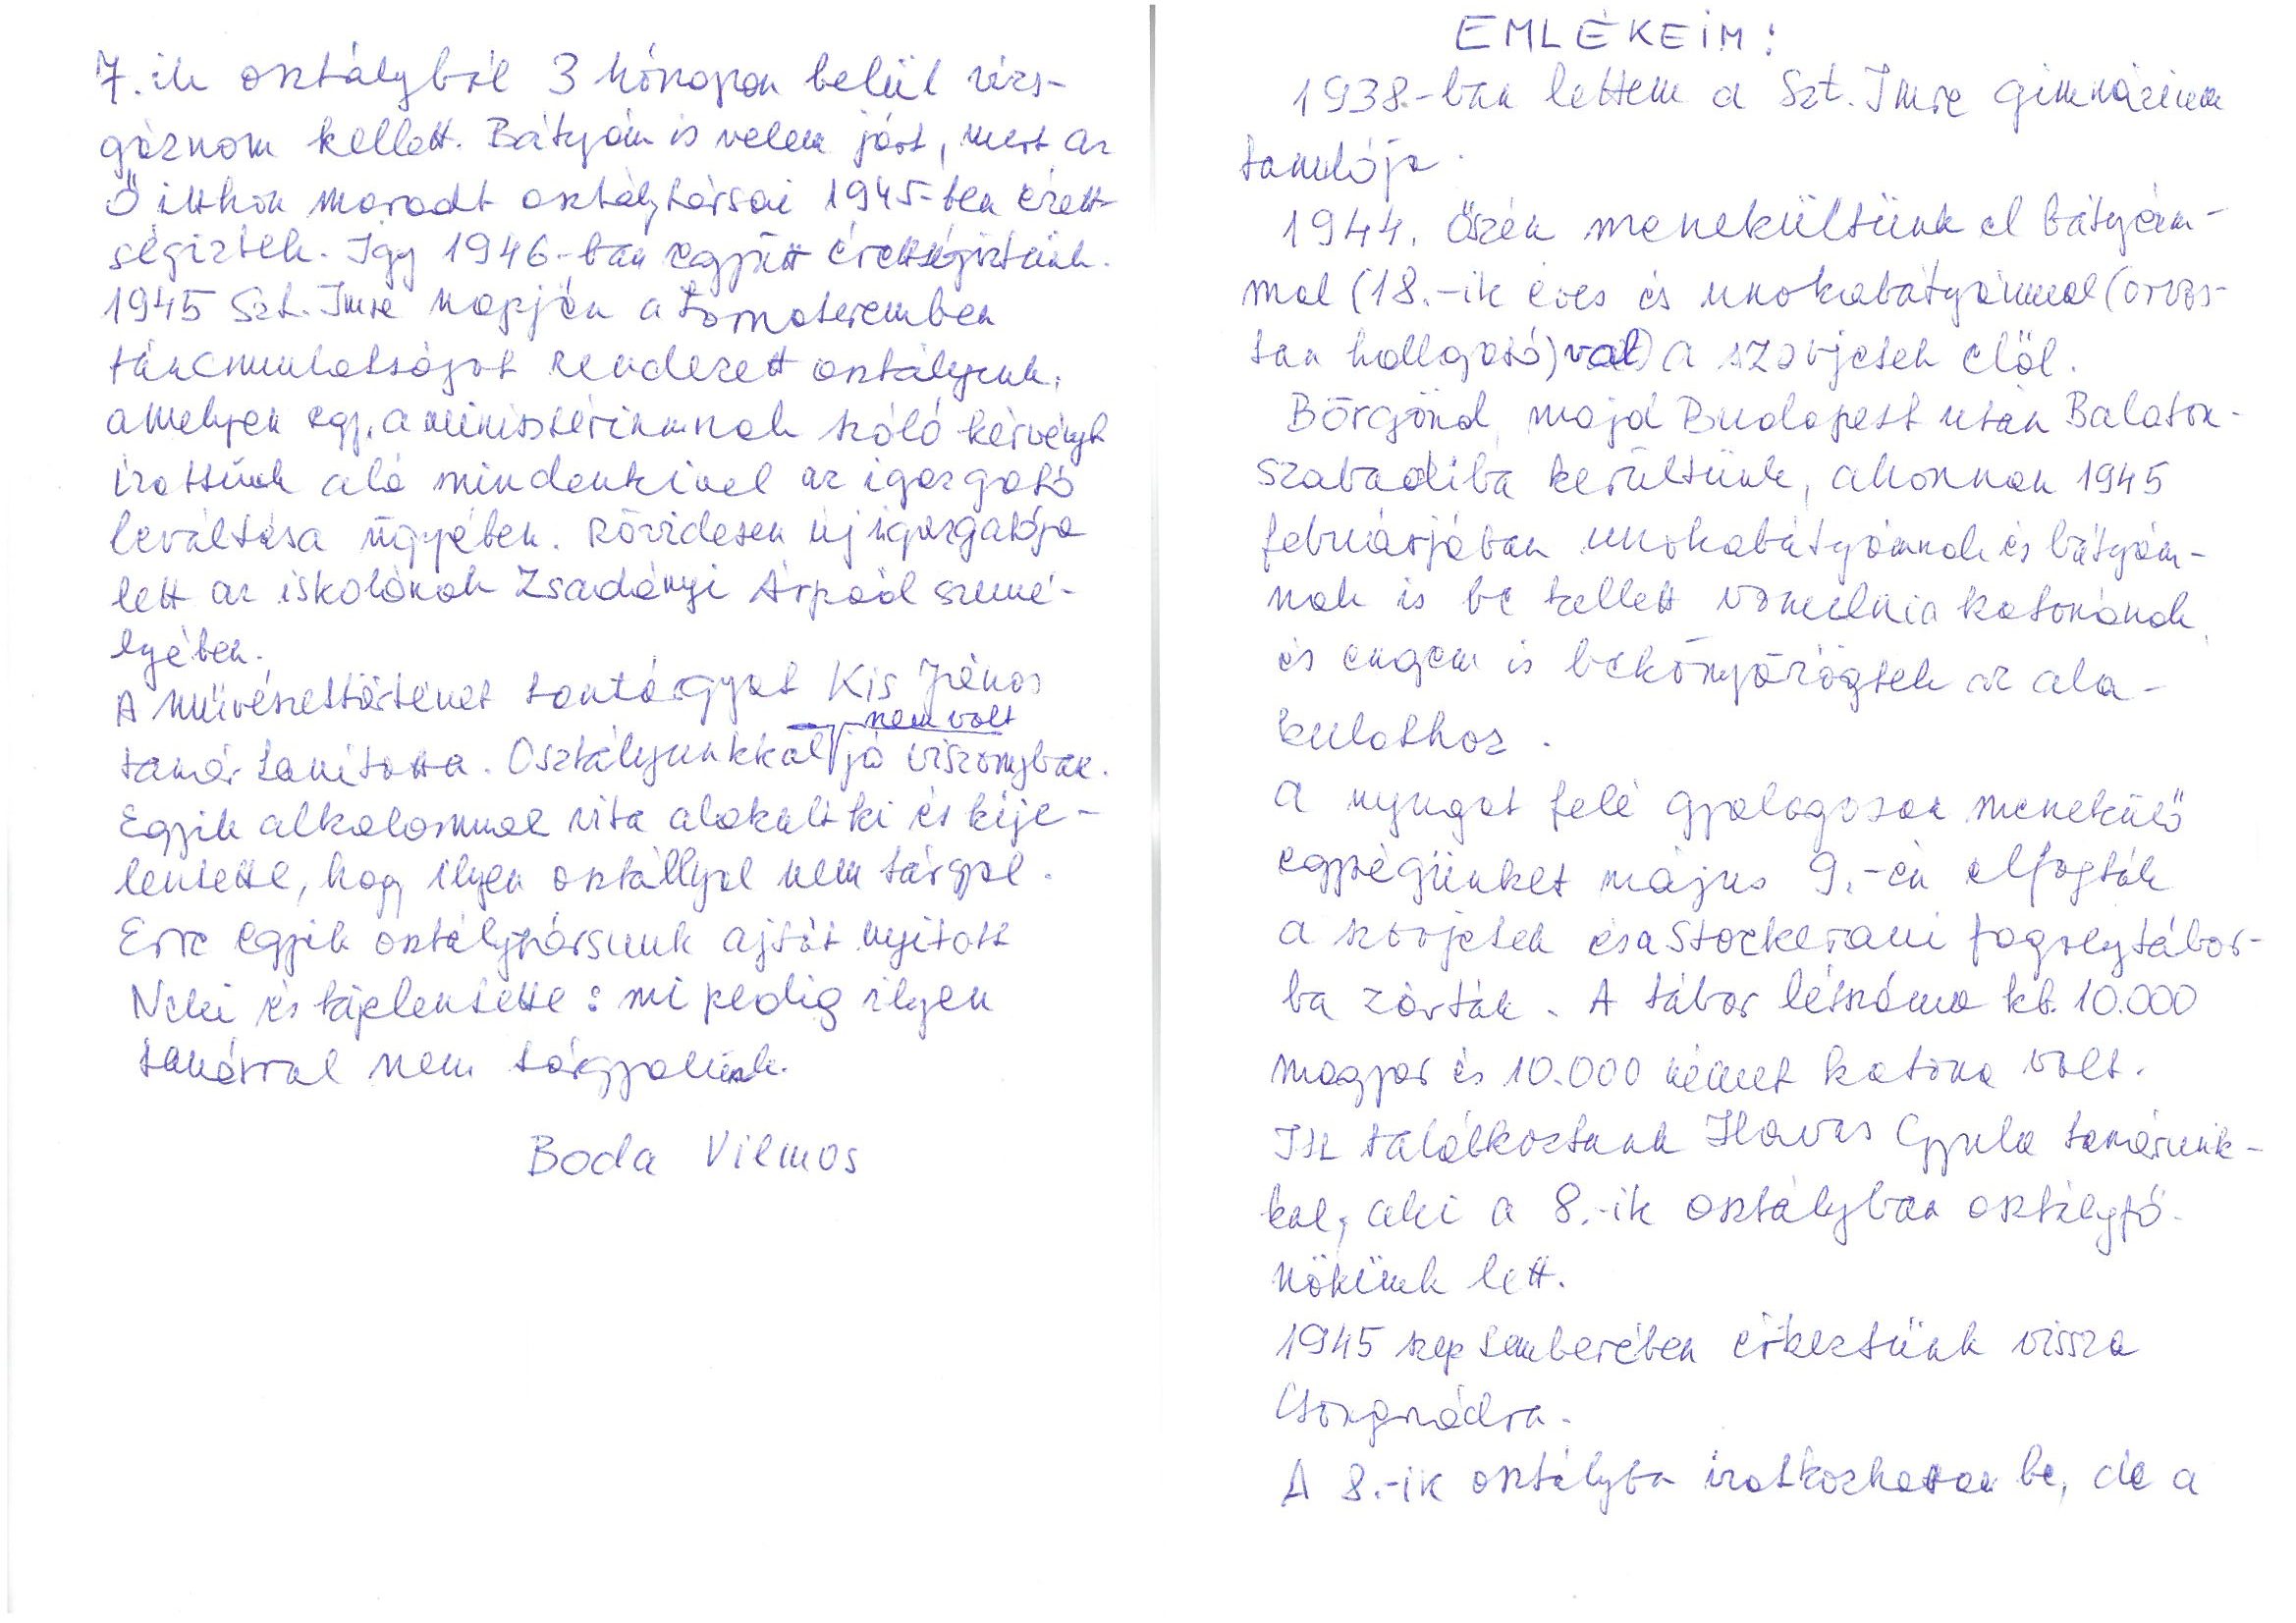 EMLÉKEIM:
1938.-ban lettem a Szt. Imre gimnázium
tanulója.
1944. őszén menekültünk el bátyám-
mal (18.-ik éves és unokabátyámmal (orvos-
tan hallgató)val) a szovjetek elől.
Börgönd, majd Budapest után Balaton-
szabadiba kerültünk, ahonnan 1945
februárjában unokabátyámnak és bátyám-
nak is be kellett vonulnia katonának
és engem is bekönyörögtek az ala-
kulathoz.
A nyugat felé gyalogosan menekülő
egységünket május 9.-én elfogták
a szovjetek és a Stockeraui fogolytábor-
ba zárták. A tábor létszáma kb. 10.000
magyar és 10.000 német katona volt.
Itt találkoztunk Havas Gyula tanárunk-
kal, aki a 8.-ik osztályban osztályfő-
nökünk lett.
1945 szeptemberében érkeztünk vissza
Csongrádra.
A 8.-ik osztályba iratkozhaton be, de a
7.ik osztályból 3 hónapon belül vizs-
gáznom kellett. Bátyám is velem járt, mert az
Ő itthon maradt osztálytársai 1945-ben érett-
ségiztek. Igy 1946-ban együtt érettségiztünk.
1945 Szt. Imre napján a tornateremben
táncmulatságot rendezett osztályunk,
amelyen egy, a minisstériumnak szóló kérvényt
irattunk alá mindenkivel az igazgató
leváltása ügyében. Rövidesen új igazgatója
lett az iskolának Zsadányi Árpád szemé-
lyében.
A művészettörténet tantárgyat Kis János
tanár tanította. Osztályunkkal nem volt jó viszonyban.
Egyik alkalommal vita alakult ki és kije-
lentette, hogy ilyen osztállyal nem tárgyal.
Erre egyik osztálytársunk ajtót nyitott
Neki és kijelentette: mi pedig ilyen
tanárral nem tárgyalunk.
Boda Vilmos